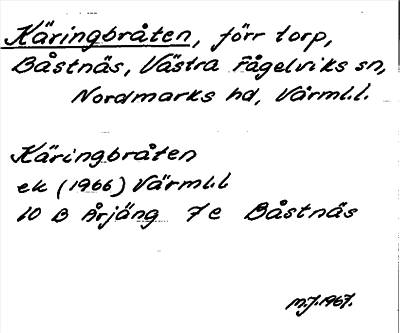 Käringbråten, förr torp,
Båstnäs, Västra Fågelviks sn,
Nordmarks hd, Värml.l.
Käringbråten
ek (1966) Värml.l
10 B Årjäng 7e Båstnäs
M.J. 1967.